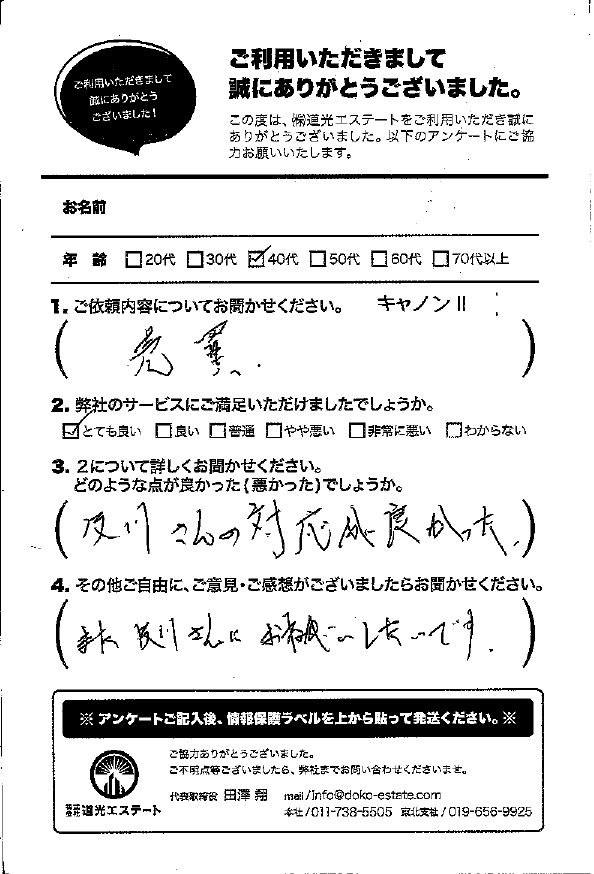 ご利用いただきまして
誠にありがとう
ございました!
ご利用いただきまして
誠にありがとうございました。
この度は、㈱道光エステートをご利用いただき誠に
ありがとうございました。以下のアンケートにご協
力お願いいたします。
お名前
年 齢 □20代 □30代 ☑40代 □50代 □60代 □70代以上
1. ご依頼内容についてお聞かせください。 キャノンⅡ
( 売買 )
2. 弊社のサービスにご満足いただけましたでしょうか。
☑とても良い □良い □普通 □やや悪い □非常に悪い □わからない
3. 2について詳しくお聞かせください。
どのような点が良かった(悪かった)でしょうか。
( 及川さんの対応が良かった。 )
4. その他ご自由に、ご意見・ご感想がございましたらお聞かせください。
( また及川さんにお願いしたいです。 )
※ アンケートご記入後、情報保護ラベルを上から貼って発送ください。※
ご協力ありがとうございました。
ご不明点等ございましたら、弊社までお問い合わせくださいませ。
代表取締役 田澤 翔 mail/info@doko-estate.com
株式会社 道光エステート 本社/011-738-5505 東北支社/019-656-9925